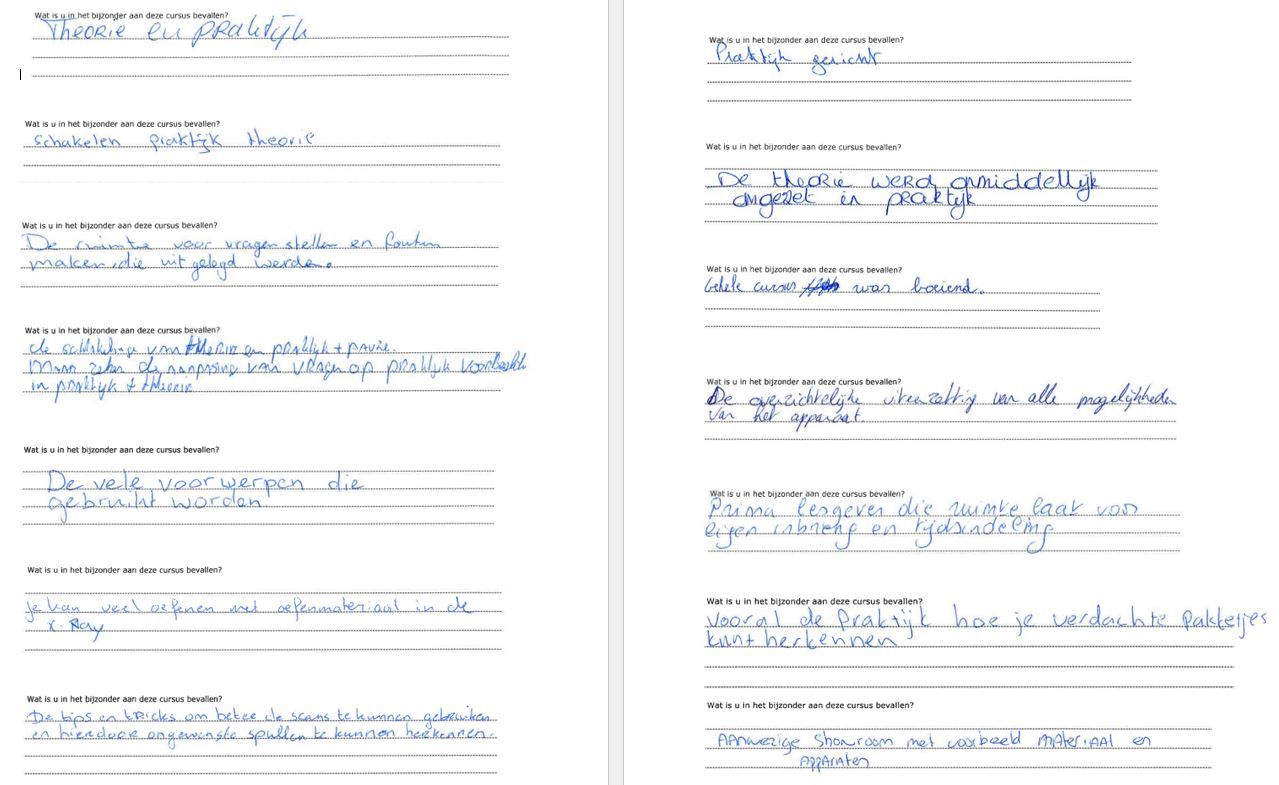 Wat is u in het bijzonder aan deze cursus bevallen?
Theorie en praktijk
Wat is u in het bijzonder aan deze cursus bevallen?
Schakelen praktijk theorie
Wat is u in het bijzonder aan deze cursus bevallen?
De ruimte voor vragen stellen en fouten
maken, die uitgelegd werden.
Wat is u in het bijzonder aan deze cursus bevallen?
de schakeling van theorie en praktijk + pauze.
Maar zeker de aanpassing van vragen op praktijk voorbeeld
in praktijk + theorie
Wat is u in het bijzonder aan deze cursus bevallen?
De vele voorwerpen die
gebruikt worden
Wat is u in het bijzonder aan deze cursus bevallen?
je kan veel oefenen met oefenmateriaal in de
X-Ray
Wat is u in het bijzonder aan deze cursus bevallen?
De tips en tricks om beter de scans te kunnen gebruiken
en hierdoor ongewenste spullen te kunnen herkennen.
Wat is u in het bijzonder aan deze cursus bevallen?
Praktijk gericht
Wat is u in het bijzonder aan deze cursus bevallen?
De theorie werd onmiddellijk
omgezet in praktijk
Wat is u in het bijzonder aan deze cursus bevallen?
Gehele cursus was boeiend.
Wat is u in het bijzonder aan deze cursus bevallen?
De overzichtelijke uiteenzetting van alle mogelijkheden
van het apparaat.
Wat is u in het bijzonder aan deze cursus bevallen?
Prima lesgever die ruimte laat voor
eigen inbreng en tijdsindeling
Wat is u in het bijzonder aan deze cursus bevallen?
vooral de Praktijk hoe je verdachte Pakketjes
kunt herkennen
Wat is u in het bijzonder aan deze cursus bevallen?
Aanwezige showroom met voorbeeld materiaal en
Apparaten